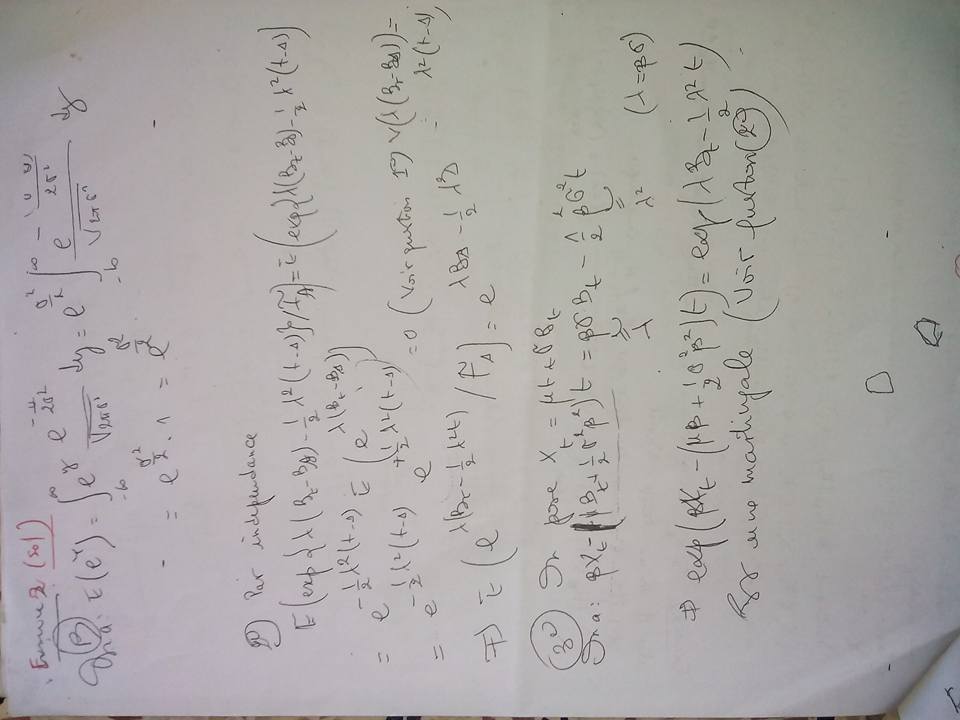 Exercice 2 (sol)
1°) On a: E(e^Y) = ∫_{-∞}^{∞} e^y e^{-y²/2σ²} / √(2πσ²) dy = e^{σ²/2} ∫_{-∞}^{∞} e^{-( )/2σ²} / √(2πσ²) dy
= e^{σ²/2} . 1 = e^{σ²/2}
2°) Par independance
E(exp{λ(B_t-B_s)-1/2 λ²(t-s)}/F_s) = E(exp{λ(B_t-B_s)-1/2 λ²(t-s)}
= e^{-1/2 λ²(t-s)} E(e^{λ(B_t-B_s)})
= e^{-1/2 λ²(t-s)} e^{+1/2 λ²(t-s)} = 0 (Voir question 1°) V(λ(B_t-B_s)) =
= λ²(t-s)
⇒ E(e^{λ(B_t-1/2 λ²t)}/F_s) = e^{λB_s-1/2 λ²s}
3°) On pose X_t = μt+σB_t
On a: βX_t-( B_t+1/2 σ²β²)t = βσB_t - 1/2 β²σ²t
= =
λ λ² (λ=βσ)
⇒ exp(βX_t-(μβ+1/2 σ²β²)t) = exp(λB_t-1/2 λ²t)
Est une martingale (Voir question 2°)